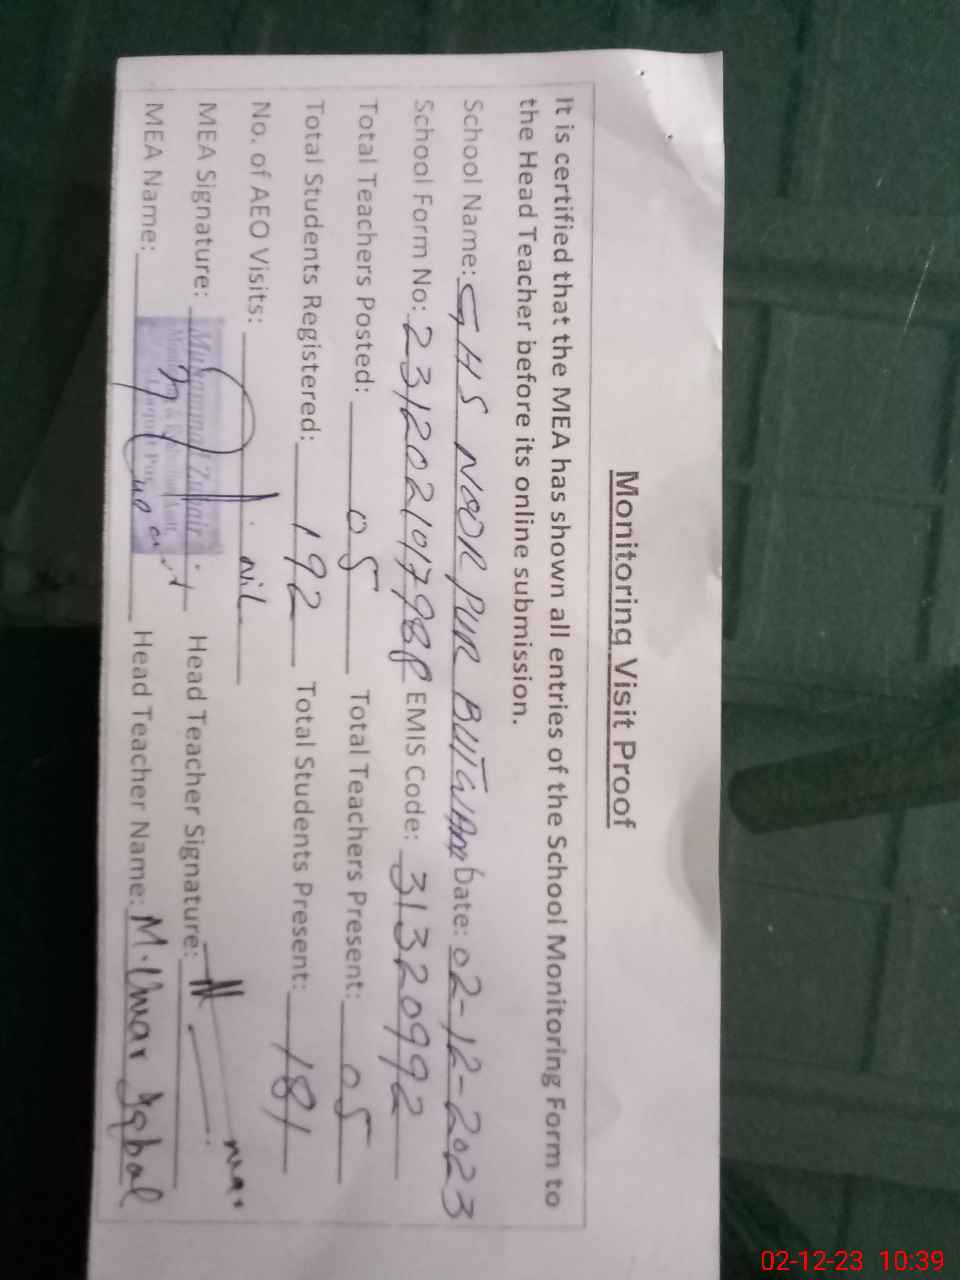 Monitoring Visit Proof
It is certified that the MEA has shown all entries of the School Monitoring Form to
the Head Teacher before its online submission.
School Name: GHS NOOR PUR Date: 02-12-2023
School Form No: EMIS Code: 31320992
Total Teachers Posted: 05 Total Teachers Present: 05
Total Students Registered: 192 Total Students Present: 181
No. of AEO Visits: nil
MEA Signature: Head Teacher Signature:
Muhammad Zubair
MEA Name: Head Teacher Name: M. Umar Iqbal
02-12-23 10:39